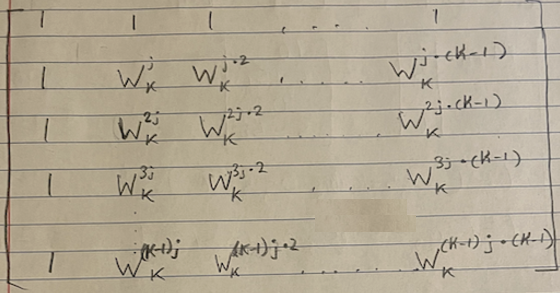 1 1 1 . . . . 1
1 W_K^j W_K^{j·2} . . . . . W_K^{j·(K-1)}
1 W_K^{2j} W_K^{2j·2} . . . . . W_K^{2j·(K-1)}
1 W_K^{3j} W_K^{3j·2} . . . . . W_K^{3j·(K-1)}
1 W_K^{(K-1)j} W_K^{(K-1)j·2} . . . . . W_K^{(K-1)j·(K-1)}